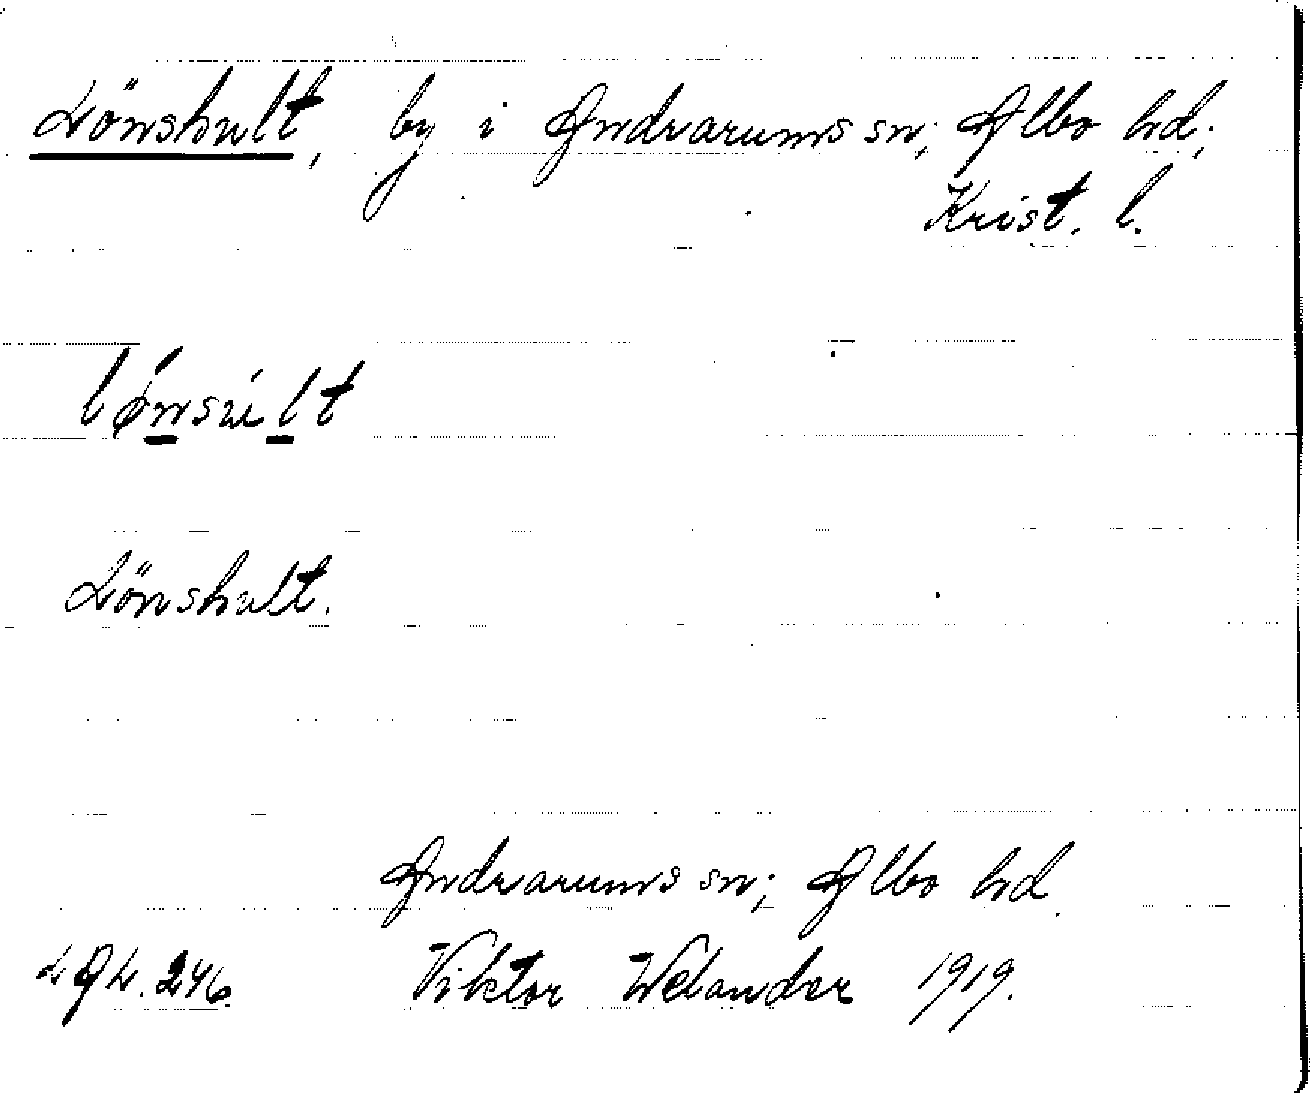 Lönshult, by i Andrarums sn; Albo hd;
Krist. l.
lǿnsúlt
Lönshult.
Andrarums sn; Albo hd.
LAL. 246. Viktor Welander 1919.